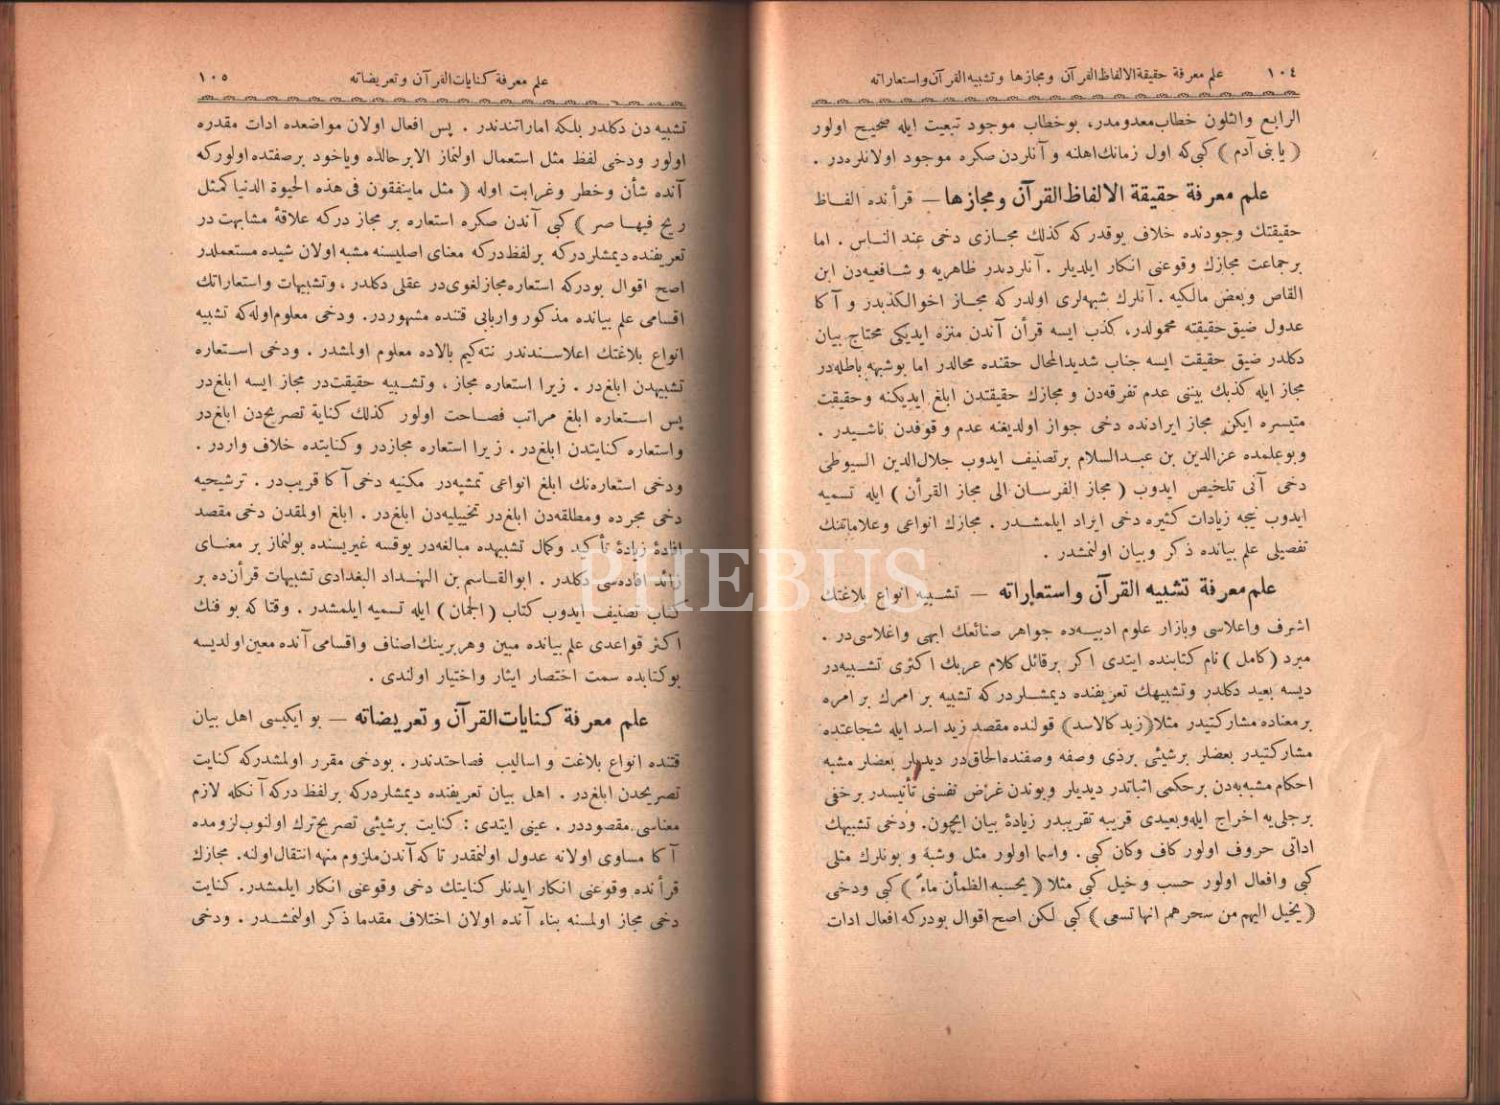 ١٠٤ علم معرفة حقيقة الالفاظ القرآن ومجازها وتشبيه القرآن واستعاراته
الرابع والثلون خطاب معدومدر، بوخطاب موجود تبعيت ايله صحيح اولور
( يابنى آدم ) كبى كه اول زمانك اهلنه و آنلردن صكره موجود اولانلره در .
علم معرفة حقيقة الالفاظ القرآن ومجازها — قرأنده الفاظ
حقيقتك وجودنده خلاف يوقدركه كذلك مجازى دخى عند الناس . اما
برجماعت مجازك وقوعنى انكار ايلديلر . آنلردندر ظاهريه و شافعيه دن ابن
القاص وبعض مالكيه . آنلرك شبهه لرى اولدركه مجاز اخوالكذبدر و آكا
عدول ضيق حقيقته محمولدر، كذب ايسه قرأن آندن منزه ايديكى محتاج بيان
دكلدر ضيق حقيقت ايسه جناب شديدالمحال حقنده محالدر اما بوشبهه باطله در
مجاز ايله كذبك بينى عدم تفرقه دن و مجازك حقيقتدن ابلغ ايديكنه وحقيقت
متيسره ايكن مجاز ايرادنده دخى جواز اولديغنه عدم وقوفدن ناشيدر .
وبوعلمده عزالدين بن عبدالسلام برتصنيف ايدوب جلال الدين السيوطى
دخى آنى تلخيص ايدوب ( مجاز الفرسان الى مجاز القرأن ) ايله تسميه
ايدوب نيجه زيادات كثيره دخى ايراد ايلمشدر . مجازك انواعى وعلاماتنك
تفصيلى علم بيانده ذكر وبيان اولنمشدر .
علم معرفة تشبيه القرآن واستعاراته — تشبيه انواع بلاغتك
اشرف واعلاسى وبازار علوم ادبيه ده جواهر صنائعك ابهى واغلاسى در .
مبرد ( كامل ) نام كتابنده ايتدى اكر برقائل كلام عربك اكثرى تشبيه در
ديسه بعيد دكلدر وتشبيهك تعريفنده ديمشلردركه تشبيه بر امرك بر امره
برمعناده مشاركتيدر مثلا (زيد كالاسد) قولنده مقصد زيد اسد ايله شجاعتده
مشاركتيدر بعضلر برشيئى برذى وصفه وصفنده الحاق در ديديلر بعضلر مشبه
احكام مشبه به دن برحكمى اثباتدر ديديلر وبوندن غرض نفسنى تأنيسدر برخفى
برجلى يه اخراج ايله وبعيدى قريبه تقريبدر زيادۀ بيان ايچون. ودخى تشبيهك
اداتى حروف اولور كاف وكان كبى . واسما اولور مثل وشبه و بونلرك مثلى
كبى وافعال اولور حسب وخيل كبى مثلا ( يحسبه الظمأن ماءً ) كبى ودخى
( يخيل اليهم من سحرهم انها تسعى ) كبى لكن اصح اقوال بودركه افعال ادات
علم معرفة كنايات القرآن وتعريضاته ١٠٥
تشبيه دن دكلدر بلكه اماراتندندر . پس افعال اولان مواضعده ادات مقدره
اولور ودخى لفظ مثل استعمال اولنماز الا برحالده وياخود برصفتده اولوركه
آنده شأن وخطر وغرابت اوله ( مثل ماينفقون فى هذه الحيوة الدنيا كمثل
ريح فيها صر ) كبى آندن صكره استعاره بر مجاز دركه علاقۀ مشابهت در
تعريفنده ديمشلردركه برلفظ دركه معناى اصليسنه مشبه اولان شيده مستعملدر
اصح اقوال بودركه استعاره مجاز لغوى در عقلى دكلدر ، وتشبيهات واستعاراتك
اقسامى علم بيانده مذكور واربابى قتنده مشهوردر. ودخى معلوم اوله كه تشبيه
انواع بلاغتك اعلاسندندر نته كيم بالاده معلوم اولمشدر . ودخى استعاره
تشبيهدن ابلغ در . زيرا استعاره مجاز ، وتشبيه حقيقت در مجاز ايسه ابلغ در
پس استعاره ابلغ مراتب فصاحت اولور كذلك كناية تصريح دن ابلغ در
واستعاره كنايتدن ابلغ در . زيرا استعاره مجازدر وكنايتده خلاف واردر .
ودخى استعاره نك ابلغ انواعى تمثيه در مكنيه دخى آكا قريب در . ترشيحيه
دخى مجرده ومطلقه دن ابلغ در تخييليه دن ابلغ در . ابلغ اولمقدن دخى مقصد
افادۀ زيادۀ تأكيد وكمال تشبيهده مبالغه در يوقسه غيريسنده بولنماز بر معناى
زائد افاده سى دكلدر . ابوالقاسم بن البهنداد البغدادى تشبيهات قرأن ده بر
كتاب تصنيف ايدوب كتاب (الجمان) ايله تسميه ايلمشدر . وقتا كه بو فنك
اكثر قواعدى علم بيانده مبين وهر برينك اصناف واقسامى آنده معين اولديسه
بوكتابده سمت اختصار ايثار واختيار اولندى .
علم معرفة كنايات القرآن وتعريضاته — بو ايكيسى اهل بيان
قتنده انواع بلاغت و اساليب فصاحتدندر . بودخى مقرر اولمشدركه كنايت
تصريحدن ابلغ در . اهل بيان تعريفنده ديمشلردركه برلفظ دركه آنكله لازم
معناسى مقصوددر . عينى ايتدى : كنايت برشيئى تصريح ترك اولنوب لزومده
آكا مساوى اولانه عدول اولنمقدر تا كه آندن ملزوم منهه انتقال اولنه. مجازك
قرأنده وقوعنى انكار ايدنلر كنايتك دخى وقوعنى انكار ايلمشدر. كنايت
دخى مجاز اولمسنه بناء آنده اولان اختلاف مقدما ذكر اولنمشدر . ودخى
PHEBUS